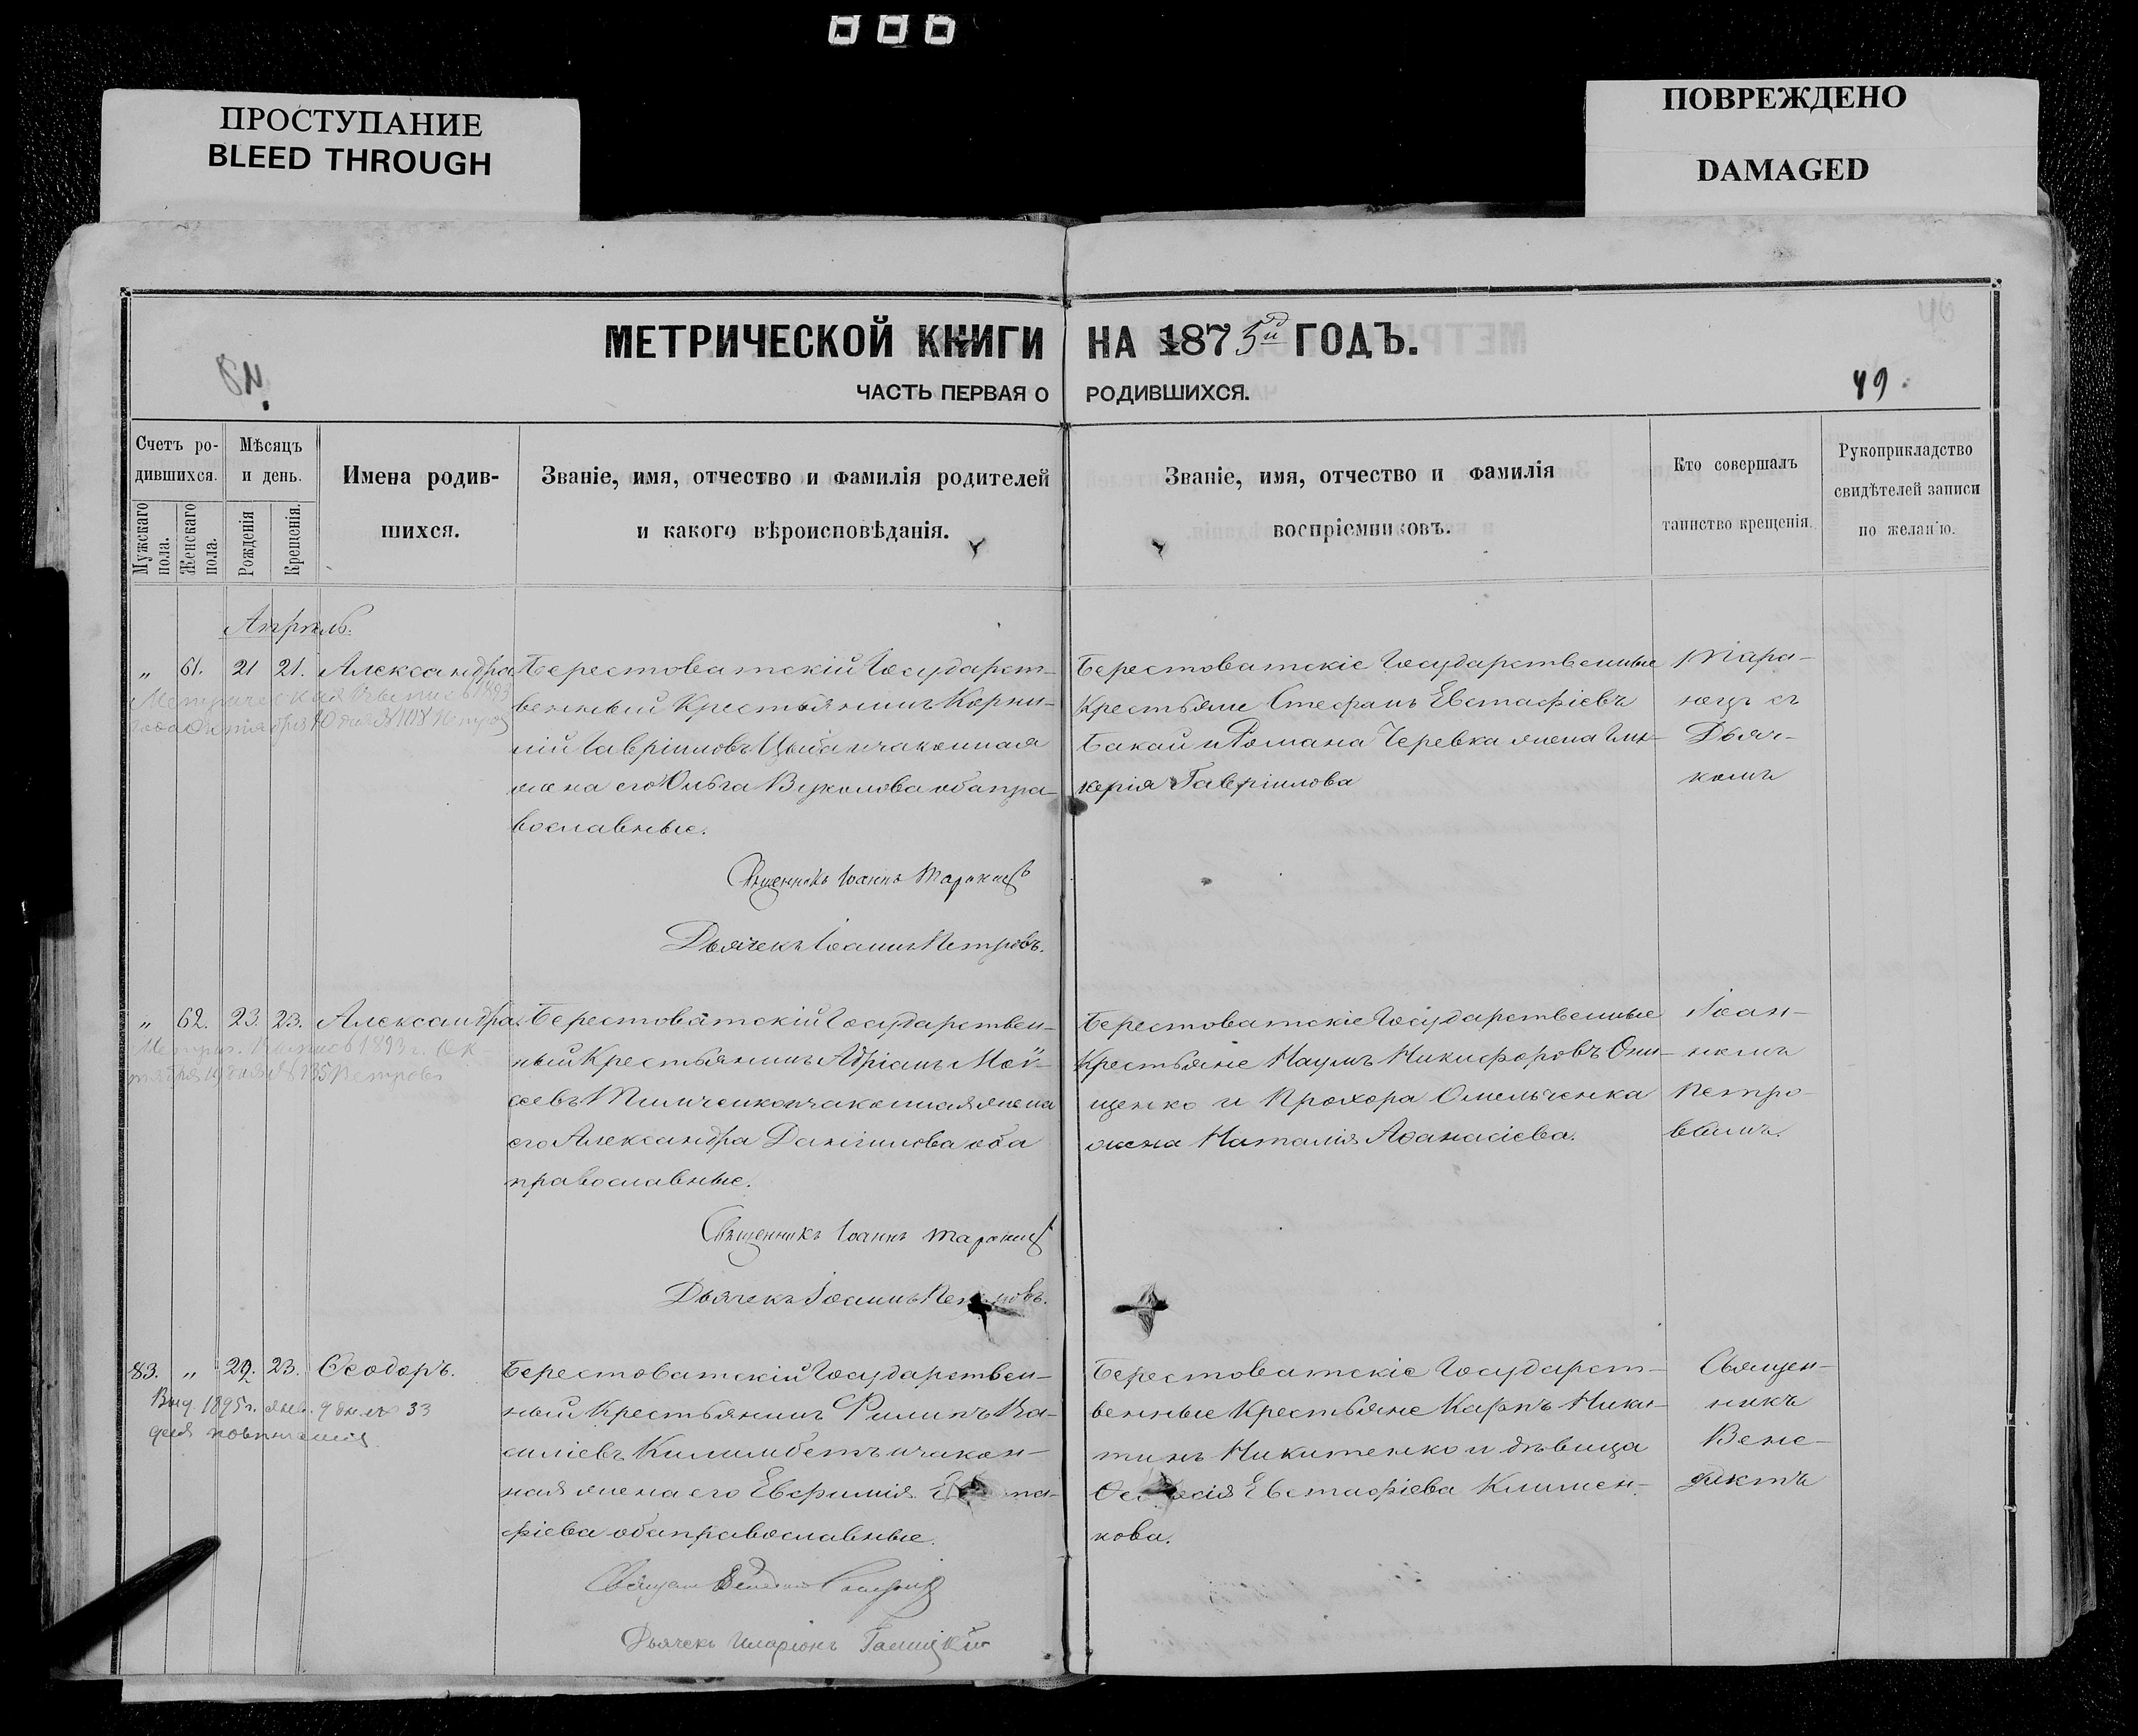 ПРОСТУПАНИЕ
BLEED THROUGH
ПОВРЕЖДЕНО
DAMAGED
МЕТРИЧЕСКОЙ КНИГИ НА 1875й ГОДЪ.
ЧАСТЬ ПЕРВАЯ О РОДИВШИХСЯ.
49.
Счетъ ро-
дившихся.
Мужскаго пола.
Женскаго пола.
Мѣсяцъ
и день.
Рожденія
Крещенія.
Имена родив-
шихся.
Званіе, имя, отчество и фамилія родителей
и какого вѣроисповѣданія.
Званіе, имя, отчество и фамилія
воспріемниковъ.
Кто совершалъ
таинство крещенія.
Рукоприкладство
свидѣтелей записи
по желанію.
Апрѣль.
„ 61. 21 21. Александра
Берестоватскій Государст-
венный Крестьянинъ Корни-
лій Гавріиловъ Цыба и законная
жена его Ольга Вуколова оба пра-
вославные.
Священникъ Іоаннъ Таранецъ
Дьячекъ Іоаннъ Петровъ.
Берестоватскіе Государственные
Крестьяне Стефанъ Евстафіевъ
Бакай и Романа Черевка жена Гли-
керія Гавріилова
Тара-
нецъ съ
Дьяч-
комъ
„ 62. 23. 23. Александра.
Берестоватскій Государствен-
ный Крестьянинъ Адріанъ Мои-
сеевъ Тимченко и законная жена
его Александра Даніилова оба
православные.
Священникъ Іоаннъ Таранецъ
Дьячекъ Іоаннъ Петровъ.
Берестоватскіе Государственные
Крестьяне Наумъ Никифоровъ Они-
щенко и Прохора Омельченка
жена Наталія Аѳанасіева.
Іоан-
номъ
Петро-
вымъ.
83. „ 29. 23. Ѳеодоръ.
Выд. 1895 г. янв. 9 дня № 33
Берестоватскій Государствен-
ный Крестьянинъ Филипъ Ва-
силіевъ Килимбетъ и закон-
ная жена его Евфимія
фіева оба православные.
Дьячекъ Иларіонъ
Берестоватскіе Государст-
венные Крестьяне Карпъ Ники-
тинъ Никитенко и дѣвица
Евстафіева Климен-
кова.
Священ-
никъ
Вене-
диктъ